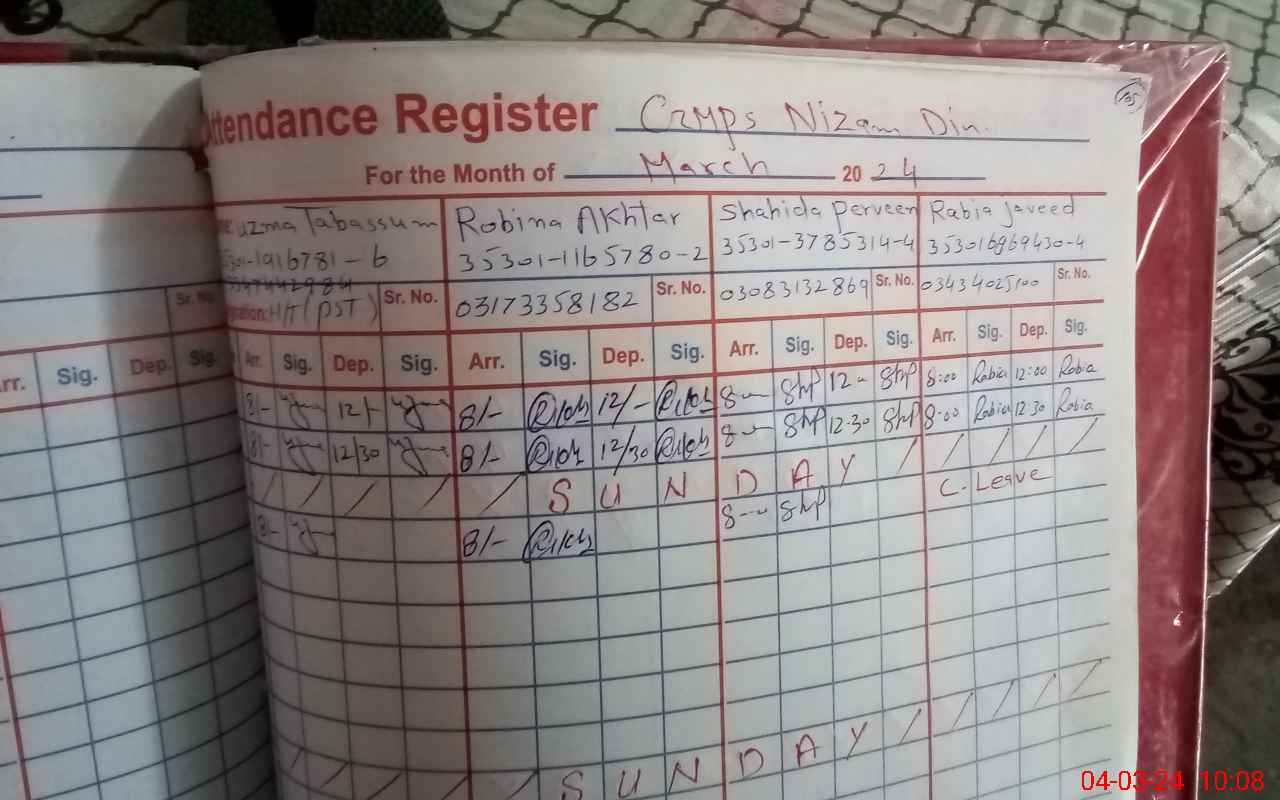 105
Attendance Register CRMPS Nizam Din.
For the Month of March 2024
Uzma Tabassum Robina Akhtar Shahida Perveen Rabia Javeed
35301-1165780-2 35301-3785314-4 353016969430-4
Sr. No. H/T (PST) Sr. No. 03173358182 Sr. No. 03083132869 Sr. No. 03434025100 Sr. No.
Arr. Sig. Dep. Sig. Arr. Sig. Dep. Sig. Arr. Sig. Dep. Sig. Arr. Sig. Dep. Sig. Arr. Sig. Dep. Sig.
8/- 12/- 8/- 12/- 8- Shp 12- Shp 8:00 Rabia 12:00 Rabia
8/- 12/30 8/- 12/30 8- Shp 12-30 Shp 8:00 Rabia 12:30 Rabia
/ / / / / S U N D A Y / / / / /
8/- 8/- 8- Shp C. Leave
/ / / / / S U N D A Y / / / / /
04-03-24 10:08